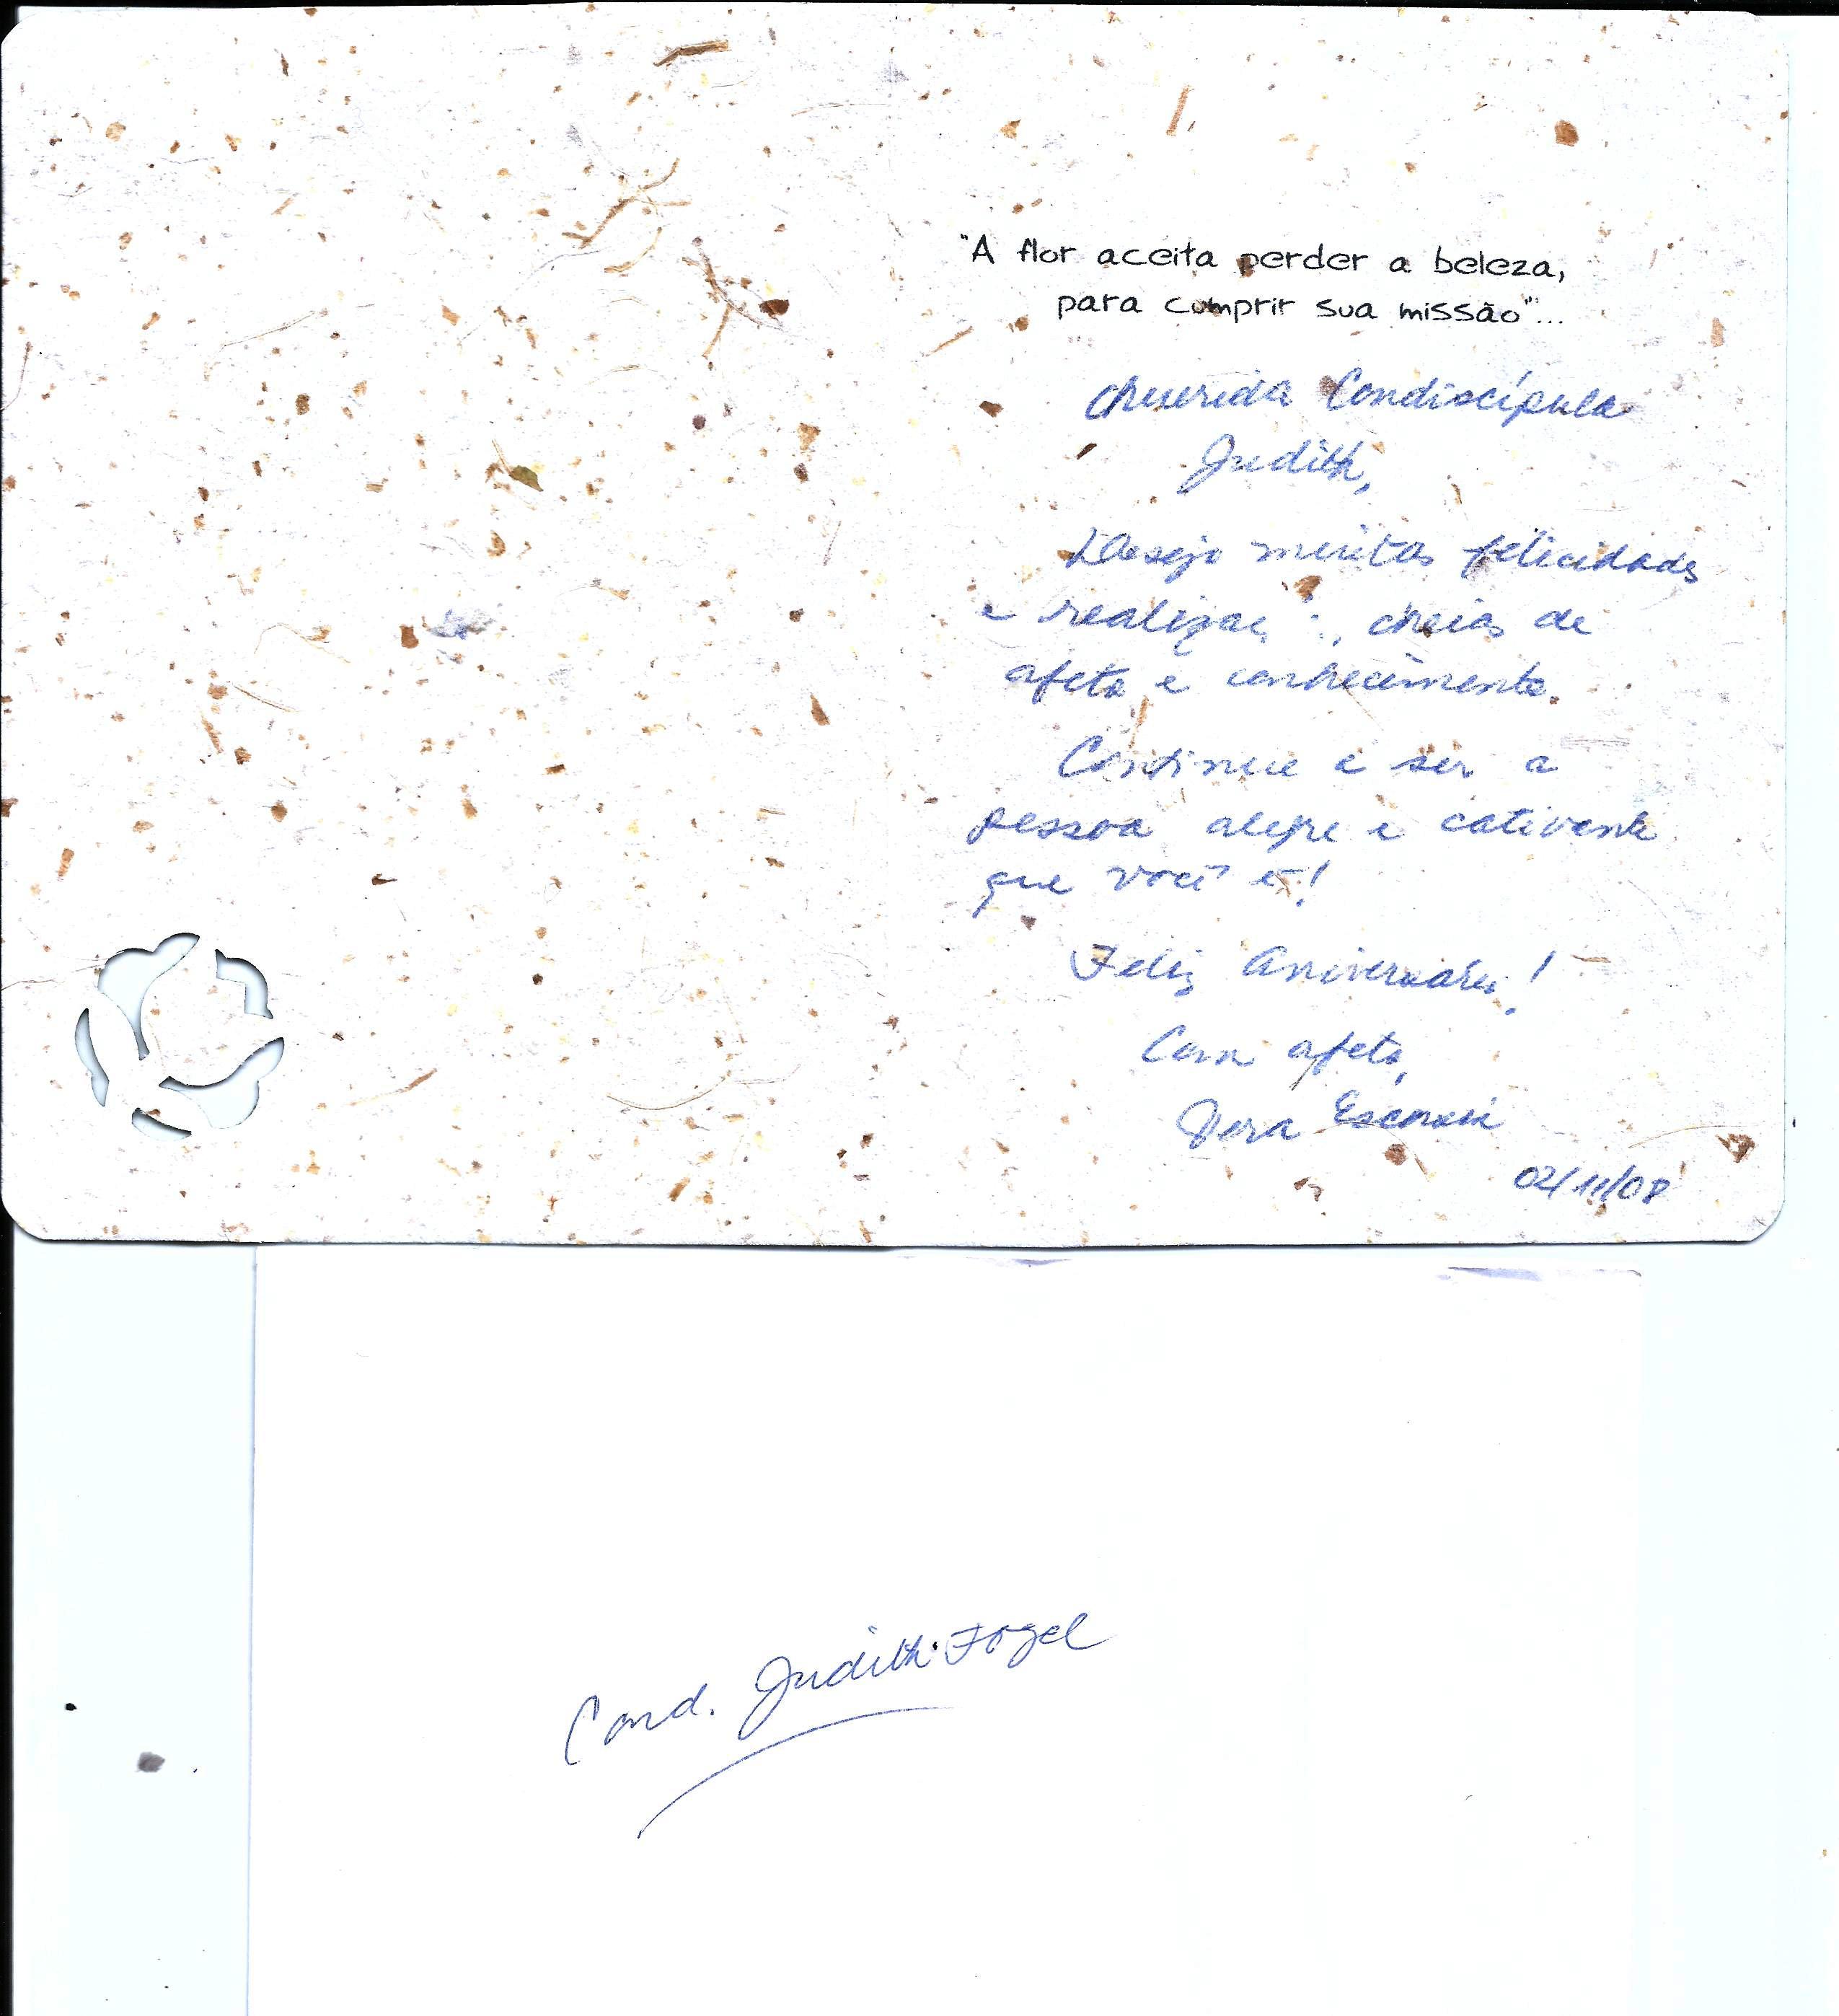 "A flor aceita perder a beleza,
para cumprir sua missão"...
Querida Condiscípula
Judith,
Desejo muitas felicidades
e cheias de
afeto e conhecimento.
Continue a ser a
pessoa alegre e cativante
que você é!
Feliz Aniversário!
Com afeto,
Vera
02/11/08
Cond. Judith Fogel